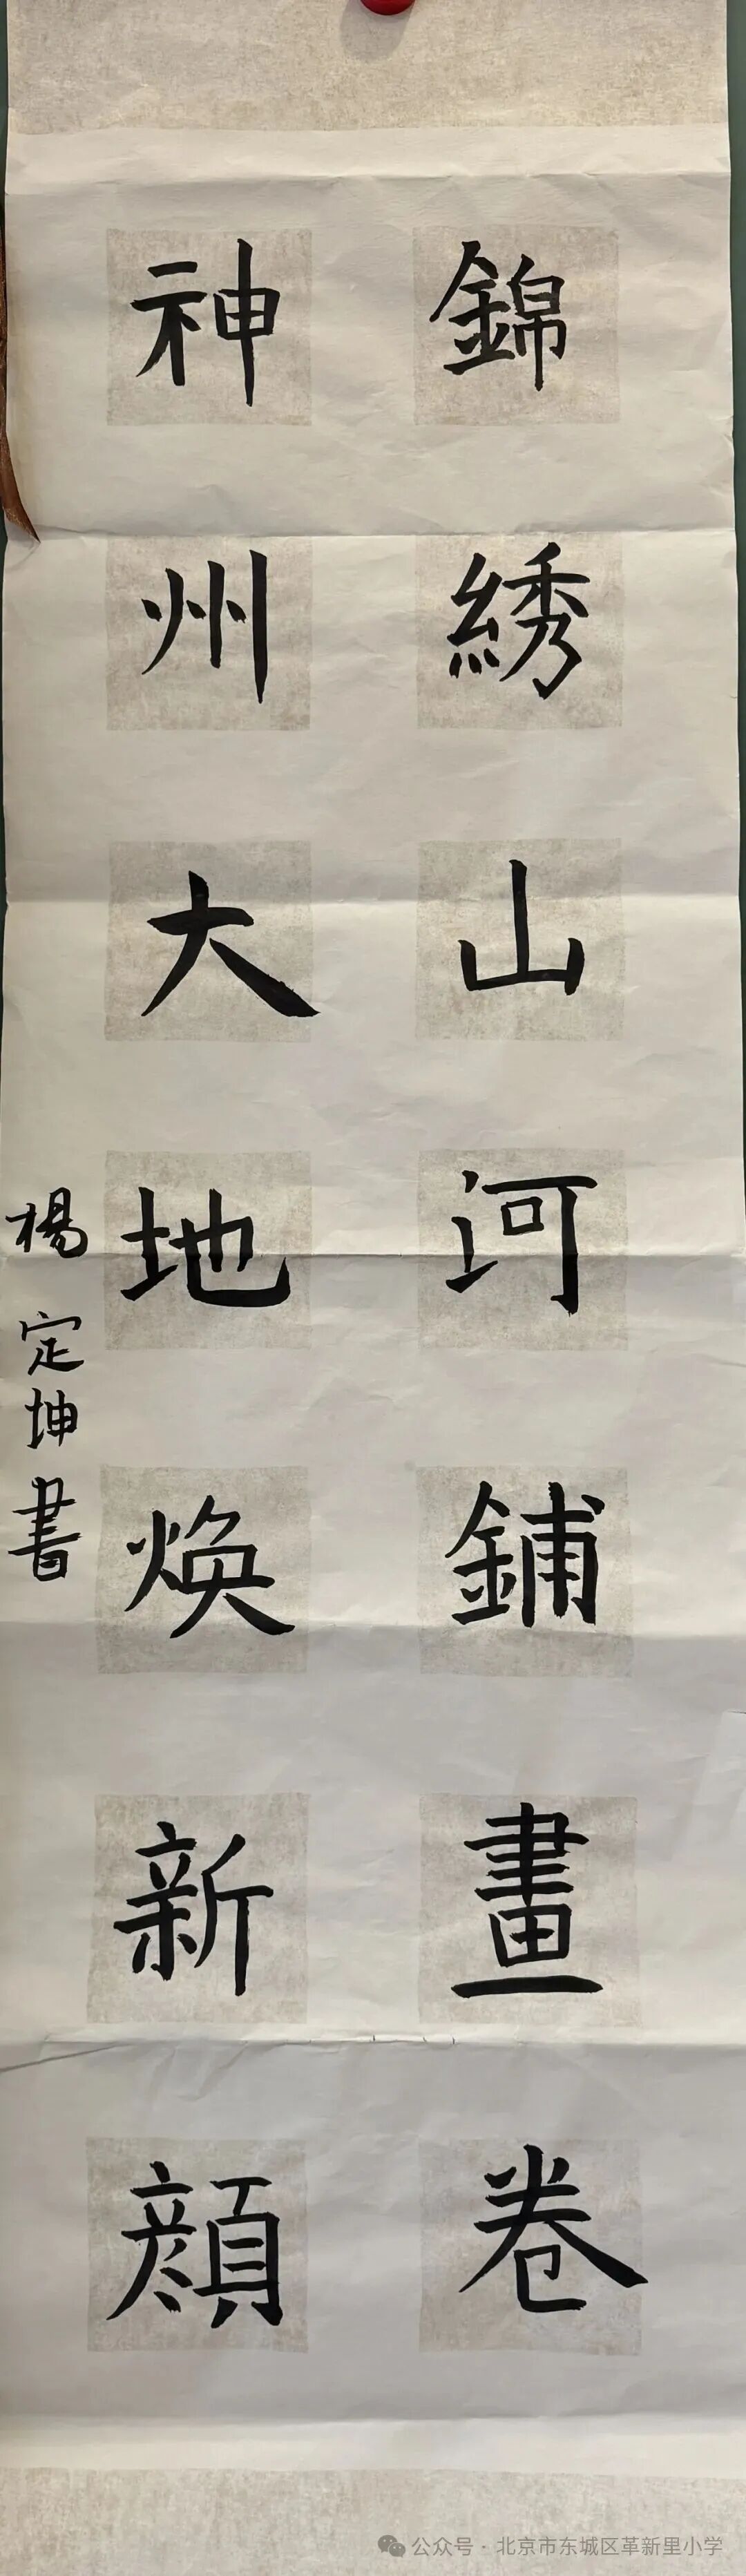 錦綉山河鋪畫卷
神州大地焕新顔
楊定坤書
公众号·北京市东城区革新里小学